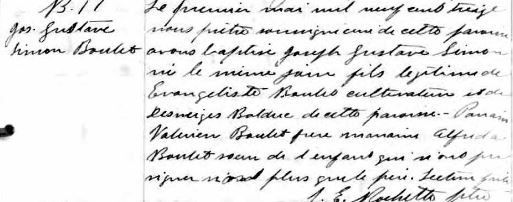 B. 17
Jos. Gustave
Simon Boulet
Le premier mai mil neuf cent treize
nous prêtre soussigné curé de cette paroisse
avons baptisé Joseph Gustave Simon
né le même jour fils légitime de
Evangéliste Boulet cultivateur et de
Desneiges Bolduc de cette paroisse - Parrain
Valerien Boulet frère marraine Alfreda
Boulet soeur de l'enfant qui n'ont pu
signer non plus que le père. Lecture faite
J. E. Rochette ptre